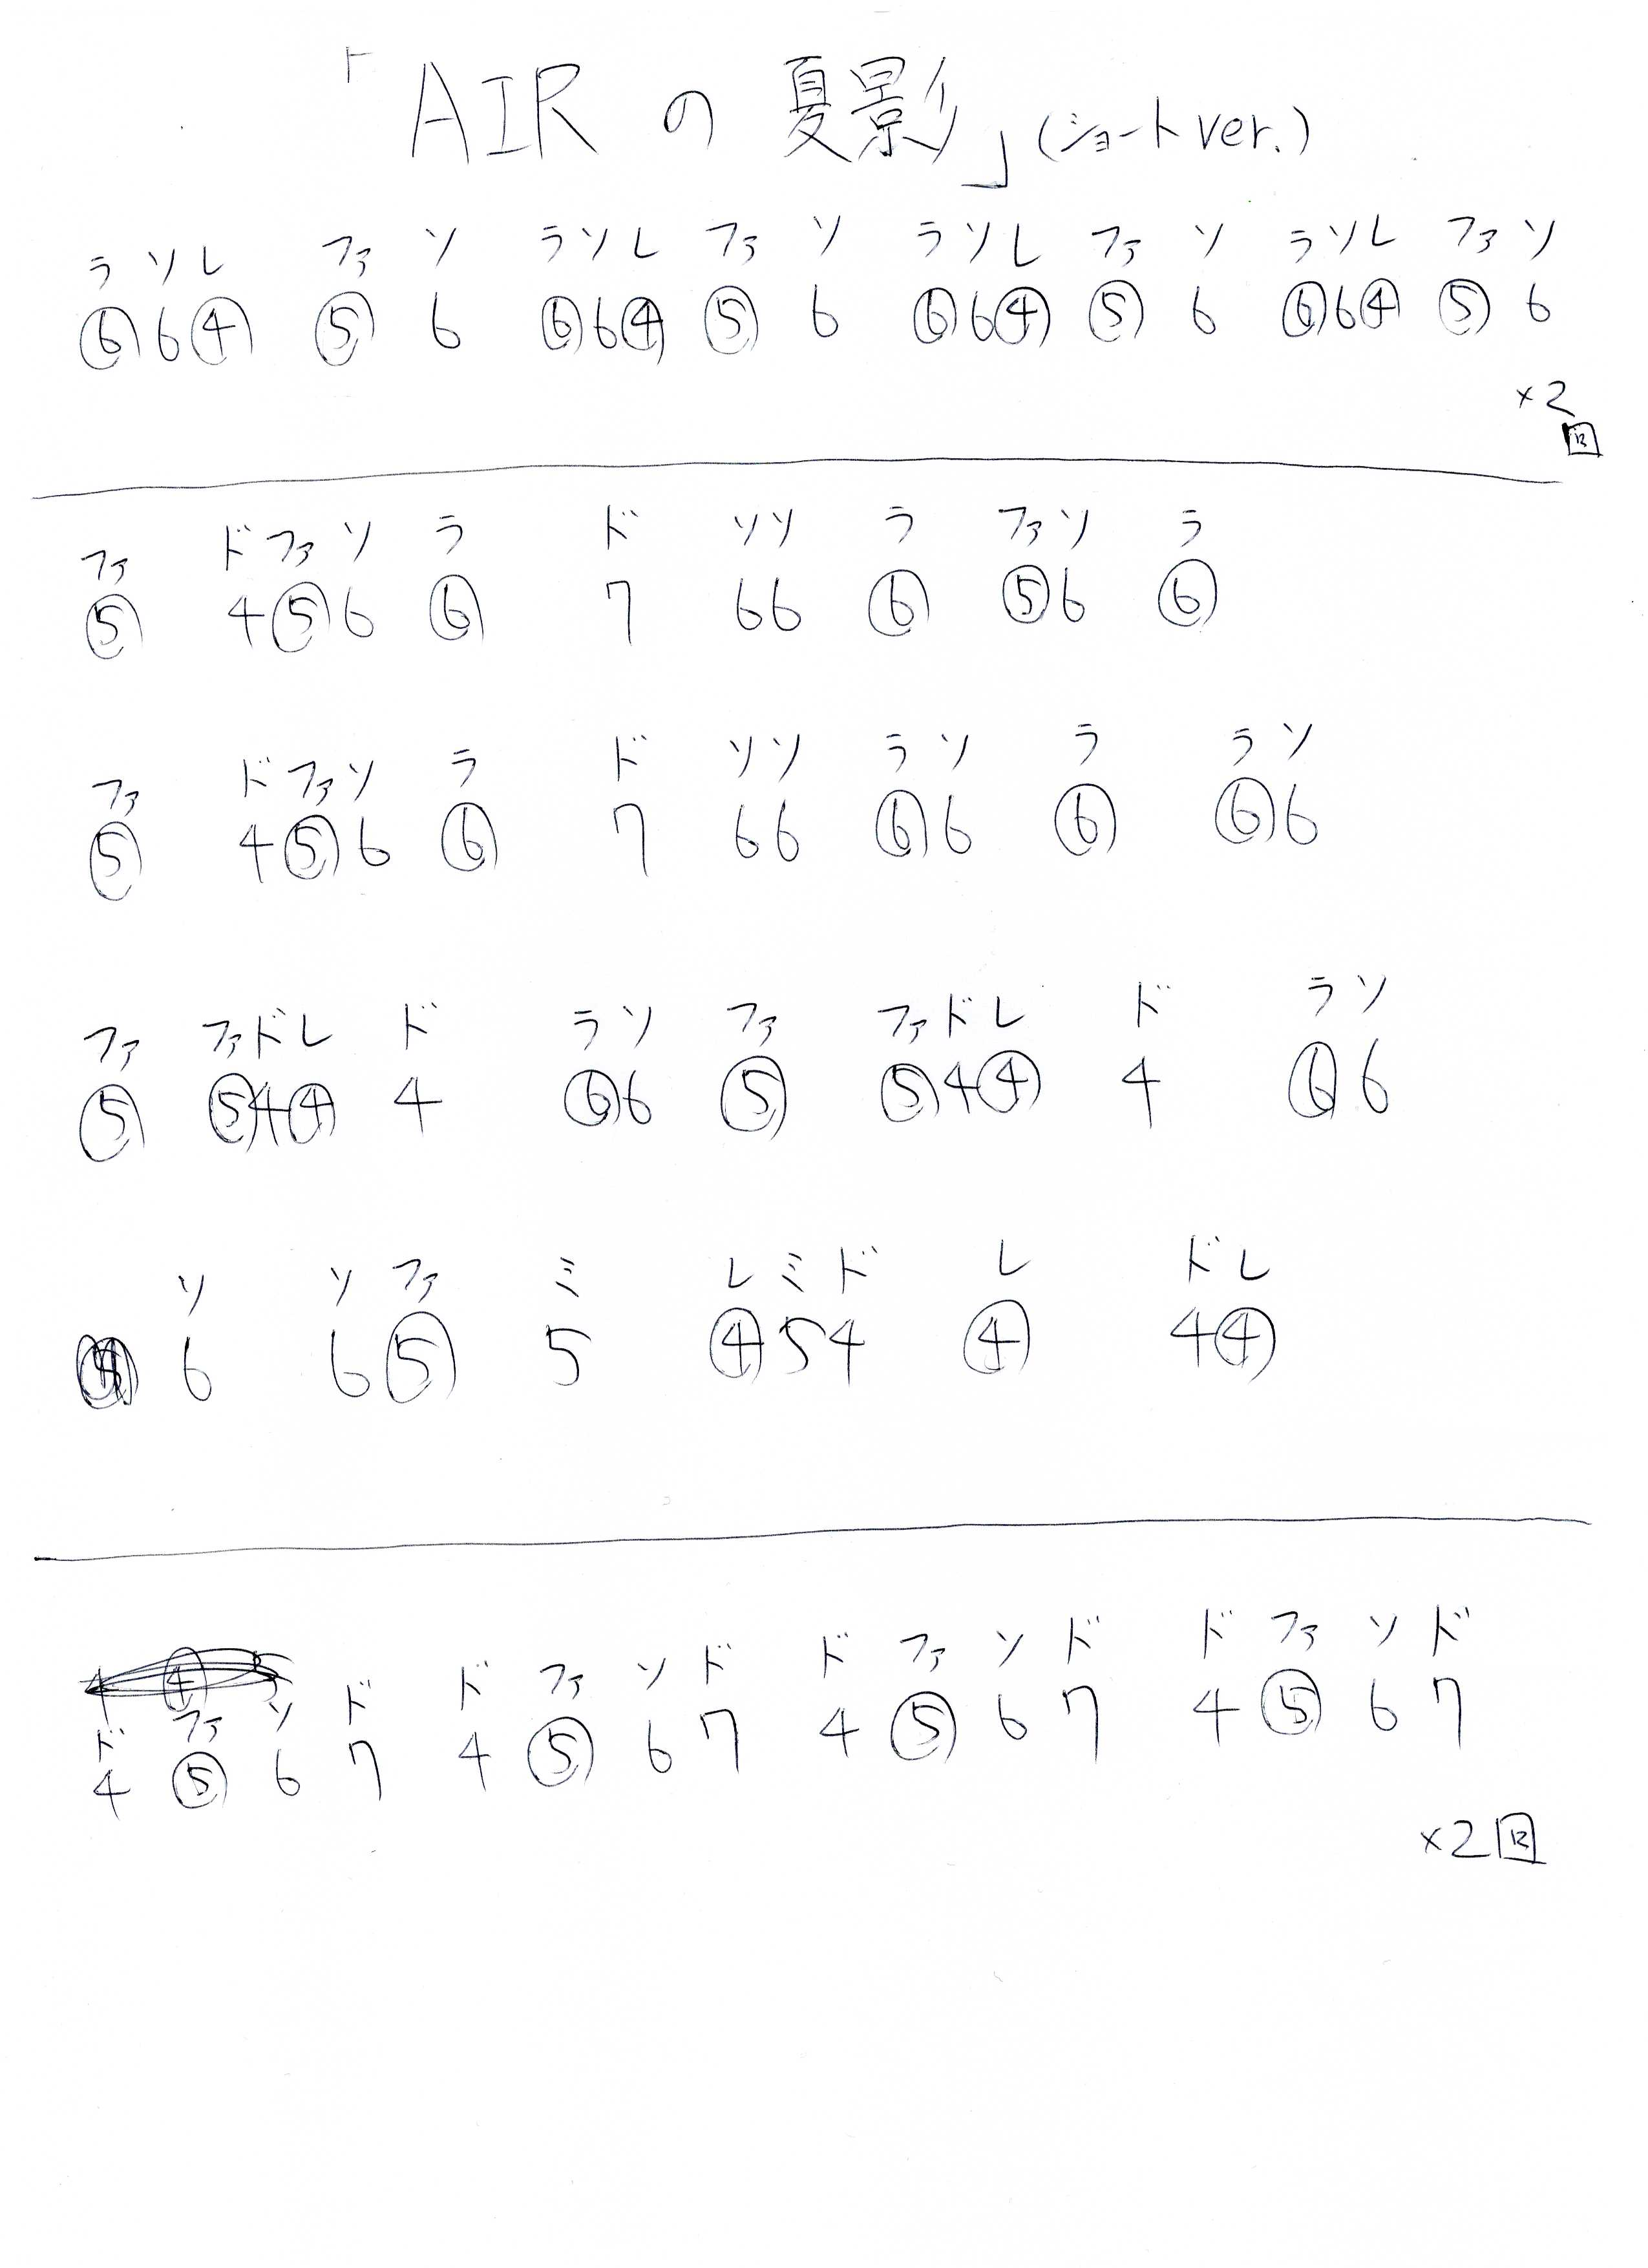 「AIRの夏影」(ショートver.)
ラ ソ レ ファ ソ ラ ソ レ ファ ソ ラ ソ レ ファ ソ ラ ソ レ ファ ソ
⑥ 6 ④ ⑤ 6 ⑥ 6 ④ ⑤ 6 ⑥ 6 ④ ⑤ 6 ⑥ 6 ④ ⑤ 6
×2回
ファ ド ファ ソ ラ ド ソ ソ ラ ファ ソ ラ
⑤ 4 ⑤ 6 ⑥ 7 6 6 ⑥ ⑤ 6 ⑥
ファ ド ファ ソ ラ ド ソ ソ ラ ソ ラ ラ ソ
⑤ 4 ⑤ 6 ⑥ 7 6 6 ⑥ 6 ⑥ ⑥ 6
ファ ファ ド レ ド ラ ソ ファ ファ ド レ ド ラ ソ
⑤ ⑤ 4 ④ 4 ⑥ 6 ⑤ ⑤ 4 ④ 4 ⑥ 6
ソ ソ ファ ミ レ ミ ド レ ド レ
6 6 ⑤ 5 ④ 5 4 ④ 4 ④
ド ファ ソ ド ド ファ ソ ド ド ファ ソ ド ド ファ ソ ド
4 ⑤ 6 7 4 ⑤ 6 7 4 ⑤ 6 7 4 ⑤ 6 7
×2回